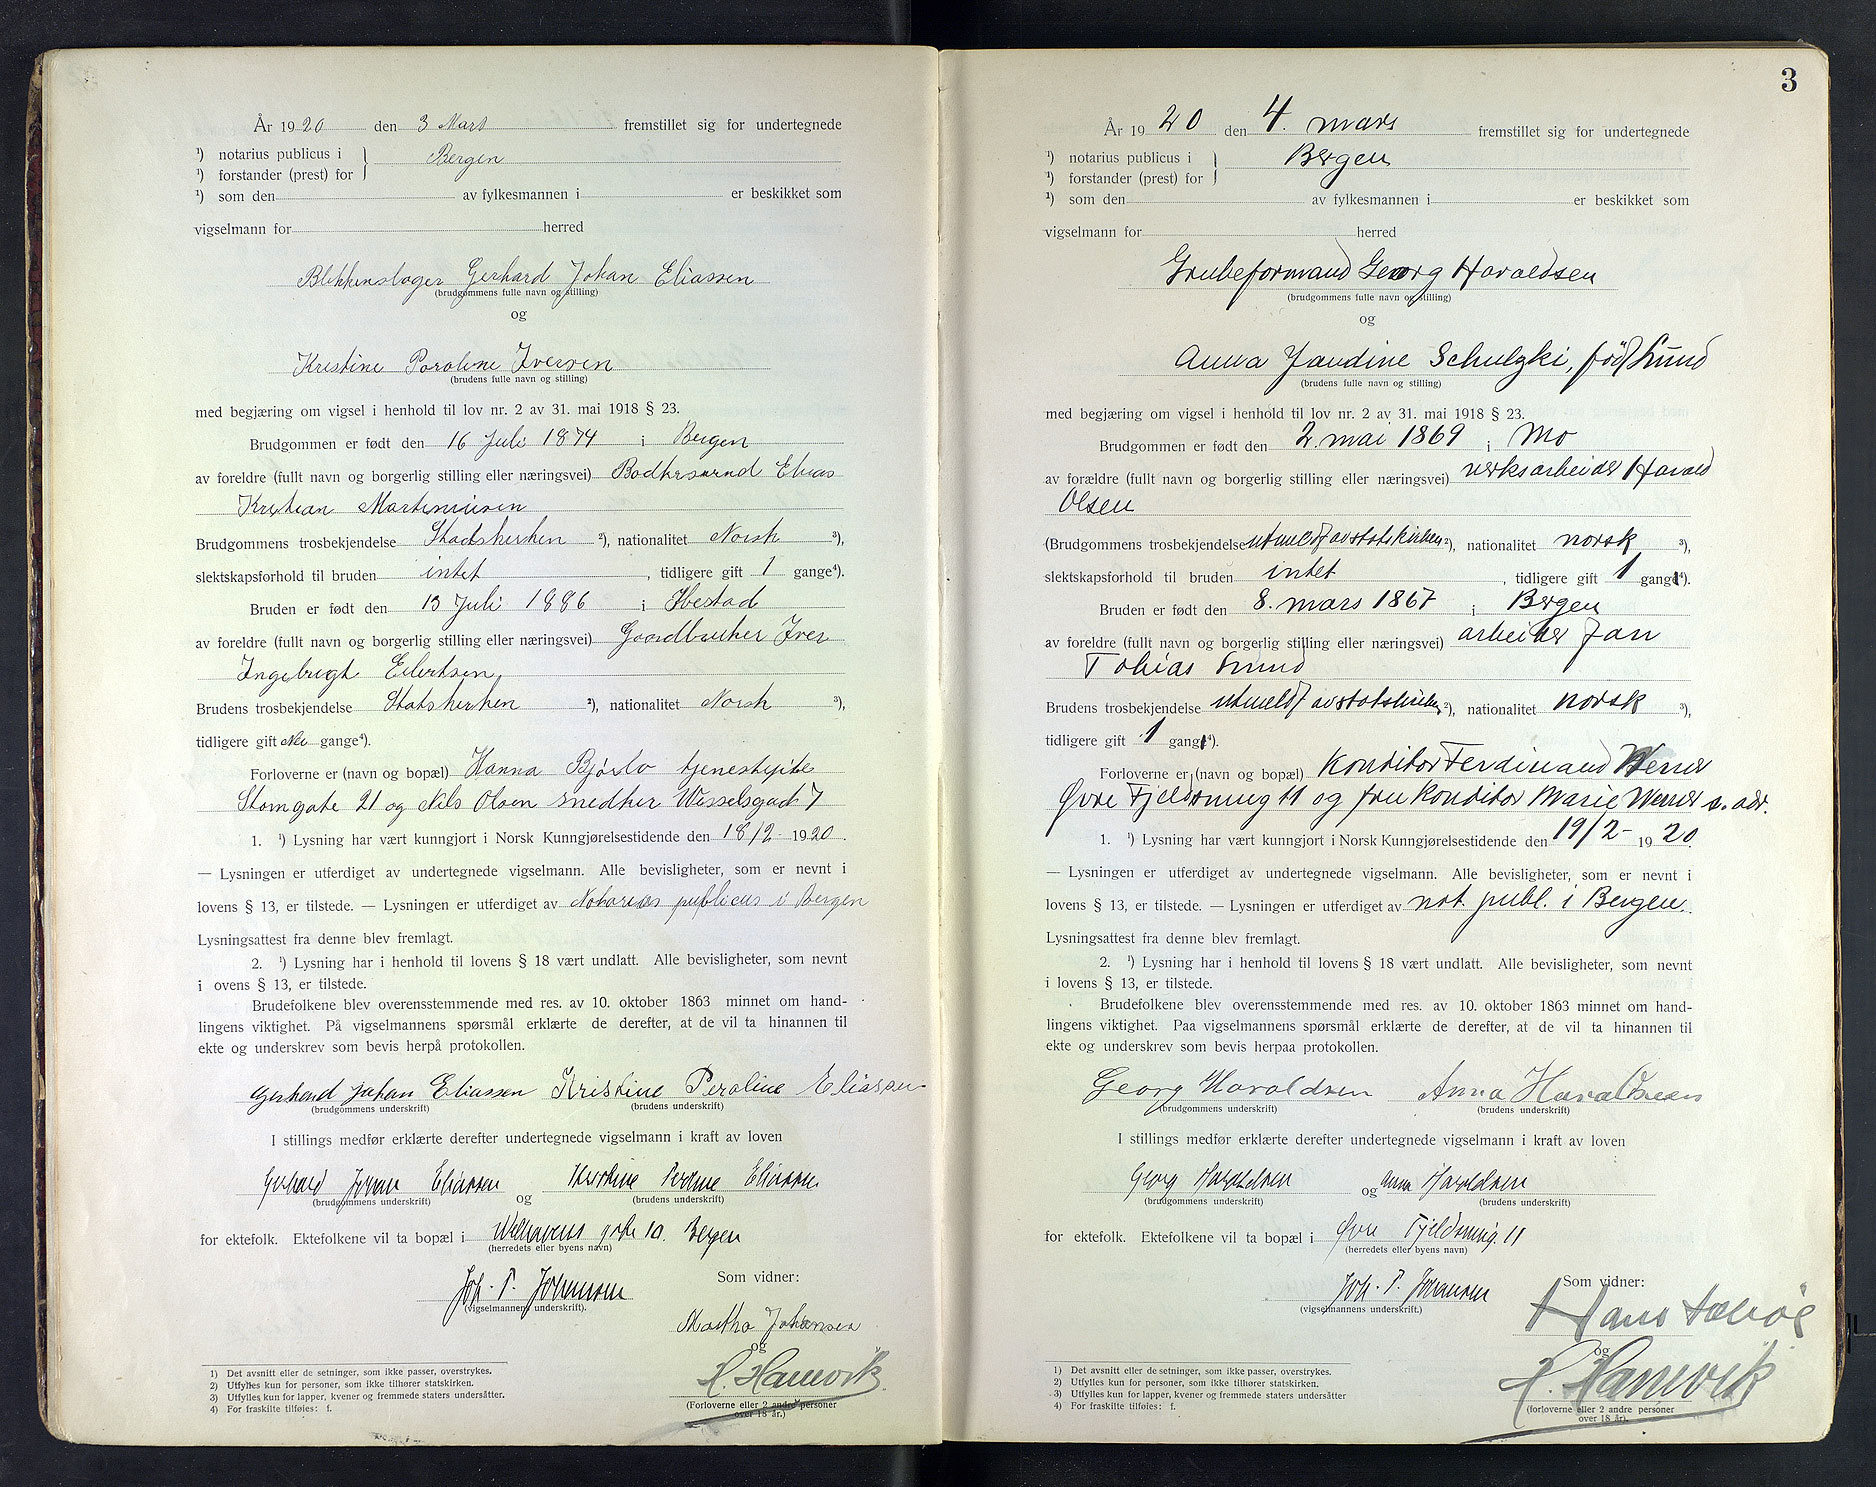 År 1920 den 3 Mars fremstillet sig for undertegnede
1) notarius publicus i Bergen
1) forstander (prest) for
1) som den av fylkesmannen i er beskikket som
vigselmann for herred
Blikkenslager Gerhard Johan Eliassen
(brudgommens fulle navn og stilling)
og
Kristine Peroline Iversen
(brudens fulle navn og stilling)
med begjæring om vigsel i henhold til lov nr. 2 av 31. mai 1918 § 23.
Brudgommen er født den 16 Juli 1874 i Bergen
av foreldre (fullt navn og borgerlig stilling eller næringsvei) Bødkersvend Elias
Kristian Martiniusen
Brudgommens trosbekjendelse Stadskirken 2), nationalitet Norsk 3),
slektskapsforhold til bruden intet, tidligere gift 1 gange4).
Bruden er født den 13 Juli 1886 i Ibestad
av foreldre (fullt navn og borgerlig stilling eller næringsvei) Gaardbruker Iver
Ingebrigt Eilertsen
Brudens trosbekjendelse Statskirken 2), nationalitet Norsk 3),
tidligere gift Nei gange4).
Forloverne er (navn og bopæl) Hanna Bjørlo tjenestepike
Strømgate 21 og Nils Olsen snedker Wesselsgade 7
1. 1) Lysning har vært kunngjort i Norsk Kunngjørelsestidende den 18/2 1920.
— Lysningen er utferdiget av undertegnede vigselmann. Alle bevisligheter, som er nevnt i
lovens § 13, er tilstede. — Lysningen er utferdiget av Notarius publicus i Bergen
Lysningsattest fra denne blev fremlagt.
2. 1) Lysning har i henhold til lovens § 18 vært undlatt. Alle bevisligheter, som nevnt
i ovens § 13, er tilstede.
Brudefolkene blev overensstemmende med res. av 10. oktober 1863 minnet om hand-
lingens viktighet. På vigselmannens spørsmål erklærte de derefter, at de vil ta hinannen til
ekte og underskrev som bevis herpå protokollen.
Gerhard Johan Eliassen Kristine Peroline Eliassen
(brudgommens underskrift) (brudens underskrift)
I stillings medfør erklærte derefter undertegnede vigselmann i kraft av loven
Gerhard Johan Eliassen og Kristine Peroline Eliassen
(brudgommens underskrift) (brudens underskrift)
for ektefolk. Ektefolkene vil ta bopæl i Welhavens gate 10. Bergen
(herredets eller byens navn)
Joh. P. Johannsen Som vidner:
(vigselmannens underskrift).
Martha Johansen
og
H. Hamvik
(Forloverne eller 2 andre personer
over 18 år.)
1) Det avsnitt eller de setninger, som ikke passer, overstrykes.
2) Utfylles kun for personer, som ikke tilhører statskirken.
3) Utfylles kun for lapper, kvener og fremmede staters undersåtter.
4) For fraskilte tilføies: f.
3
År 1920 den 4. mars fremstillet sig for undertegnede
1) notarius publicus i Bergen
1) forstander (prest) for
1) som den av fylkesmannen i er beskikket som
vigselmann for herred
Grubeformand Georg Haraldsen
(brudgommens fulle navn og stilling)
og
Anna Jandine Schulzki, født Lund
(brudens fulle navn og stilling)
med begjæring om vigsel i henhold til lov nr. 2 av 31. mai 1918 § 23.
Brudgommen er født den 2. mai 1869 i Mo
av forældre (fullt navn og borgerlig stilling eller næringsvei) verksarbeider Harald
Olsen
(Brudgommens trosbekjendelse utmeldt av statskirken 2), nationalitet norsk 3),
slektskapsforhold til bruden intet, tidligere gift 1 gang 4).
Bruden er født den 8. mars 1867 i Bergen
av foreldre (fullt navn og borgerlig stilling eller næringsvei) arbeider Jan
Tobias Lund
Brudens trosbekjendelse utmeldt av statskirken 2), nationalitet norsk 3),
tidligere gift 1 gang 4).
Forloverne er (navn og bopæl) Konditor Ferdinand Werner
Øvre Fjeldsmug 11 og fru konditor Marie Werner s. adr.
1. 1) Lysning har vært kunngjort i Norsk Kunngjørelsestidende den 19/2- 1920.
— Lysningen er utferdiget av undertegnede vigselmann. Alle bevisligheter, som er nevnt i
lovens § 13, er tilstede. — Lysningen er utferdiget av not. publ. i Bergen.
Lysningsattest fra denne blev fremlagt.
2. 1) Lysning har i henhold til lovens § 18 vært undlatt. Alle bevisligheter, som nevnt
i lovens § 13, er tilstede.
Brudefolkene blev overensstemmende med res. av 10. oktober 1863 minnet om hand-
lingens viktighet. Paa vigselmannens spørsmål erklærte de derefter, at de vil ta hinannen til
ekte og underskrev som bevis herpaa protokollen.
Georg Haraldsen Anna Haraldsen
(brudgommens underskrift) (brudens underskrift)
I stillings medfør erklærte derefter undertegnede vigselmann i kraft av loven
Georg Haraldsen og Anna Haraldsen
(brudgommens underskrift) (brudens underskrift)
for ektefolk. Ektefolkene vil ta bopæl i Øvre Fjeldsmug. 11
(herredets eller byens navn)
Joh. P. Johannsen Som vidner:
(vigselmannens underskrift).
Hans
og
H. Hamvik
(forloverne eller 2 andre personer
over 18 år).
1) Det avsnitt eller de setninger, som ikke passer, overstrykes.
2) Utfylles kun for personer, som ikke tilhører statskirken.
3) Utfylles kun for lapper, kvener og fremmede staters undersåtter
4) For fraskilte tilføies: f.